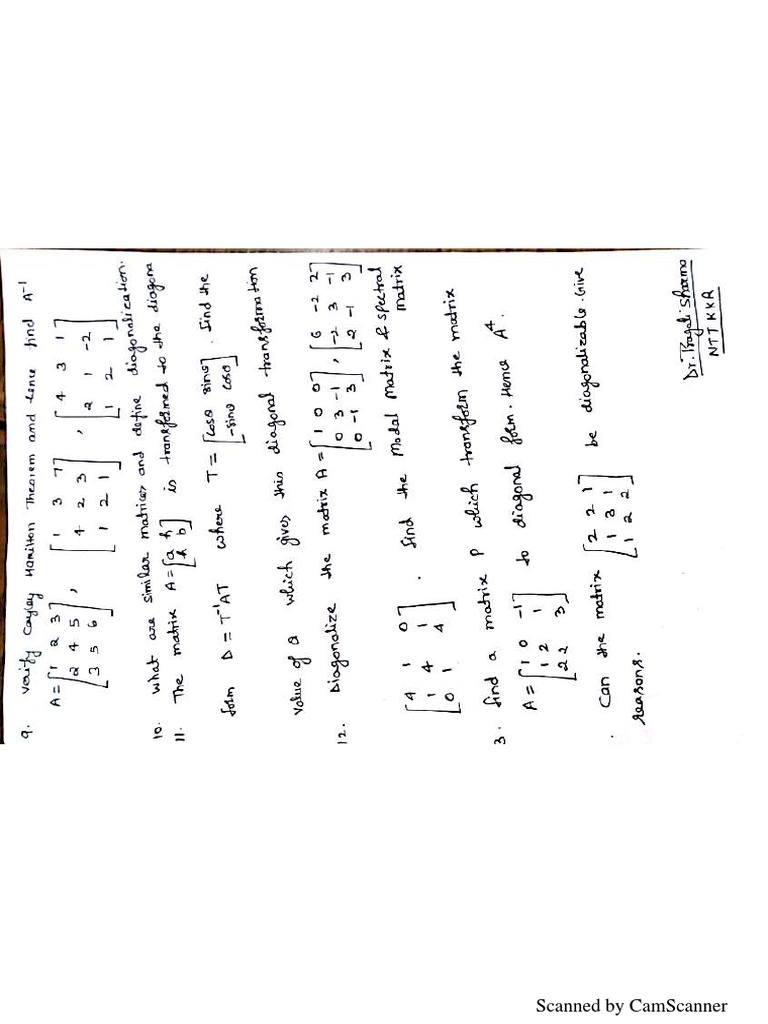 9. Verify Cayley Hamilton Theorem and hence find A⁻¹
A = [1 2 3; 2 4 5; 3 5 6], [1 3 7; 4 2 3; 1 2 1], [4 3 1; 2 1 -2; 1 2 1]
10. What are similar matrices and define diagonalication.
11. The matrix A = [a h; h b] is transformed to the diagona
form D = T⁻¹AT where T = [cosθ sinθ; -sinθ cosθ]. Find the
value of θ which gives this diagonal transformation
12. Diagonalize the matrix A = [1 0 0; 0 3 -1; 0 -1 3], [6 -2 2; -2 3 -1; 2 -1 3]
[4 1 0; 1 4 1; 0 1 4]. Find the Modal Matrix & spectral
matrix
3. Find a matrix P which transform the matrix
A = [1 0 -1; 1 2 1; 2 2 3] to diagonal form. Hence A⁴.
. Can the matrix [2 2 1; 1 3 1; 1 2 2] be diagonalizable. Give
reasons.
Dr. Pragati Sharma
NIT KKR
Scanned by CamScanner